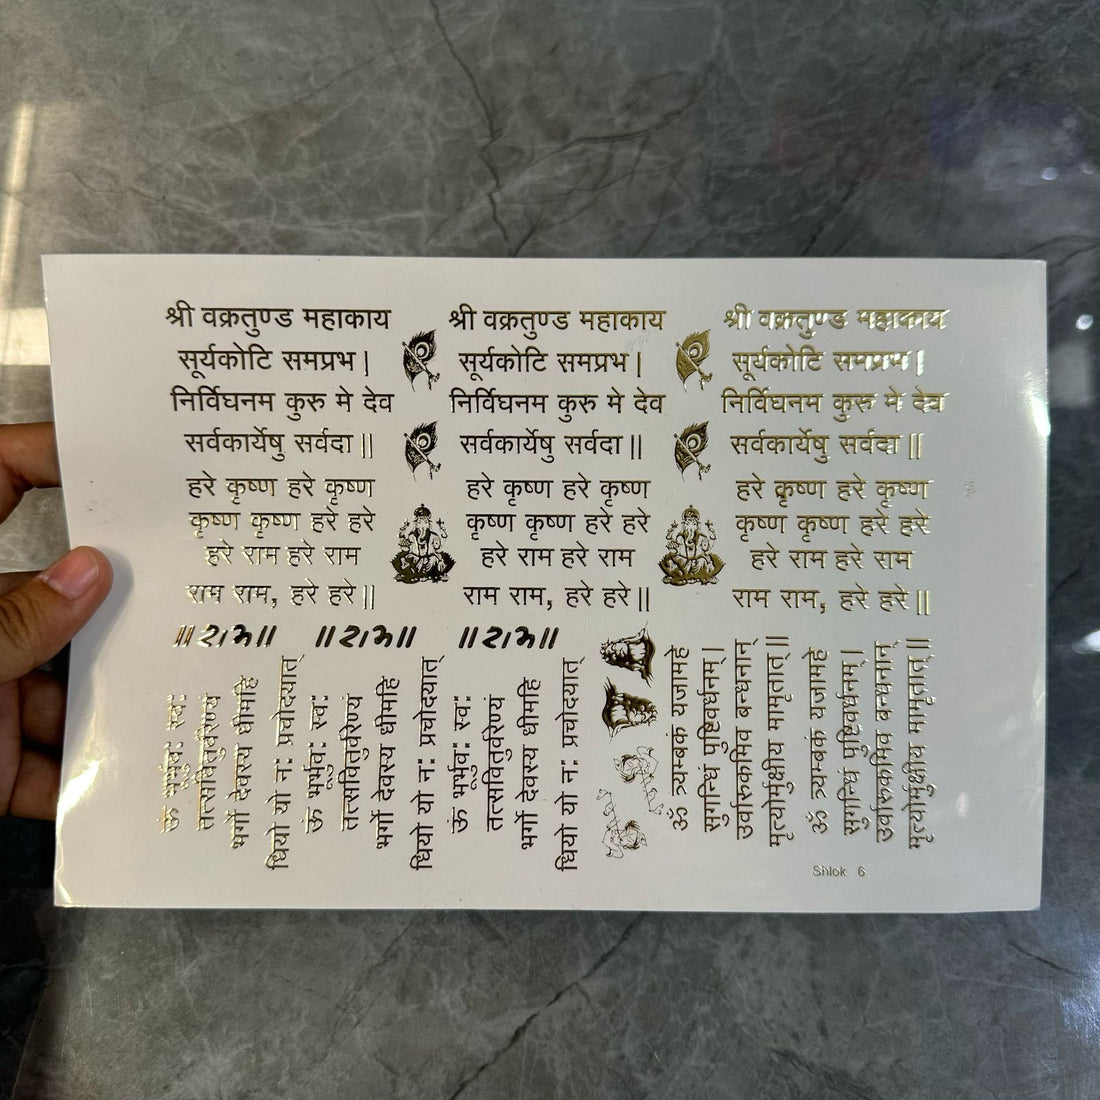 श्री वक्रतुण्ड महाकाय
सूर्यकोटि समप्रभ |
निर्विघनम कुरु मे देव
सर्वकार्येषु सर्वदा ||
हरे कृष्ण हरे कृष्ण
कृष्ण कृष्ण हरे हरे
हरे राम हरे राम
राम राम, हरे हरे ||
श्री वक्रतुण्ड महाकाय
सूर्यकोटि समप्रभ |
निर्विघनम कुरु मे देव
सर्वकार्येषु सर्वदा ||
हरे कृष्ण हरे कृष्ण
कृष्ण कृष्ण हरे हरे
हरे राम हरे राम
राम राम, हरे हरे ||
श्री वक्रतुण्ड महाकाय
सूर्यकोटि समप्रभ |
निर्विघनम कुरु मे देव
सर्वकार्येषु सर्वदा ||
हरे कृष्ण हरे कृष्ण
कृष्ण कृष्ण हरे हरे
हरे राम हरे राम
राम राम, हरे हरे ||
||राम||
||राम||
||राम||
ॐ भूर्भुवः स्वः
तत्सवितुर्वरेण्यं
भर्गो देवस्य धीमहि
धियो यो नः प्रचोदयात्
ॐ भूर्भुवः स्वः
तत्सवितुर्वरेण्यं
भर्गो देवस्य धीमहि
धियो यो नः प्रचोदयात्
ॐ भूर्भुवः स्वः
तत्सवितुर्वरेण्यं
भर्गो देवस्य धीमहि
धियो यो नः प्रचोदयात्
ॐ त्र्यम्बकं यजामहे
सुगन्धिं पुष्टिवर्धनम् |
उर्वारुकमिव बन्धनान्
मृत्योर्मुक्षीय मामृतात् ||
ॐ त्र्यम्बकं यजामहे
सुगन्धिं पुष्टिवर्धनम् |
उर्वारुकमिव बन्धनान्
मृत्योर्मुक्षीय मामृतात् ||
Shlok 6